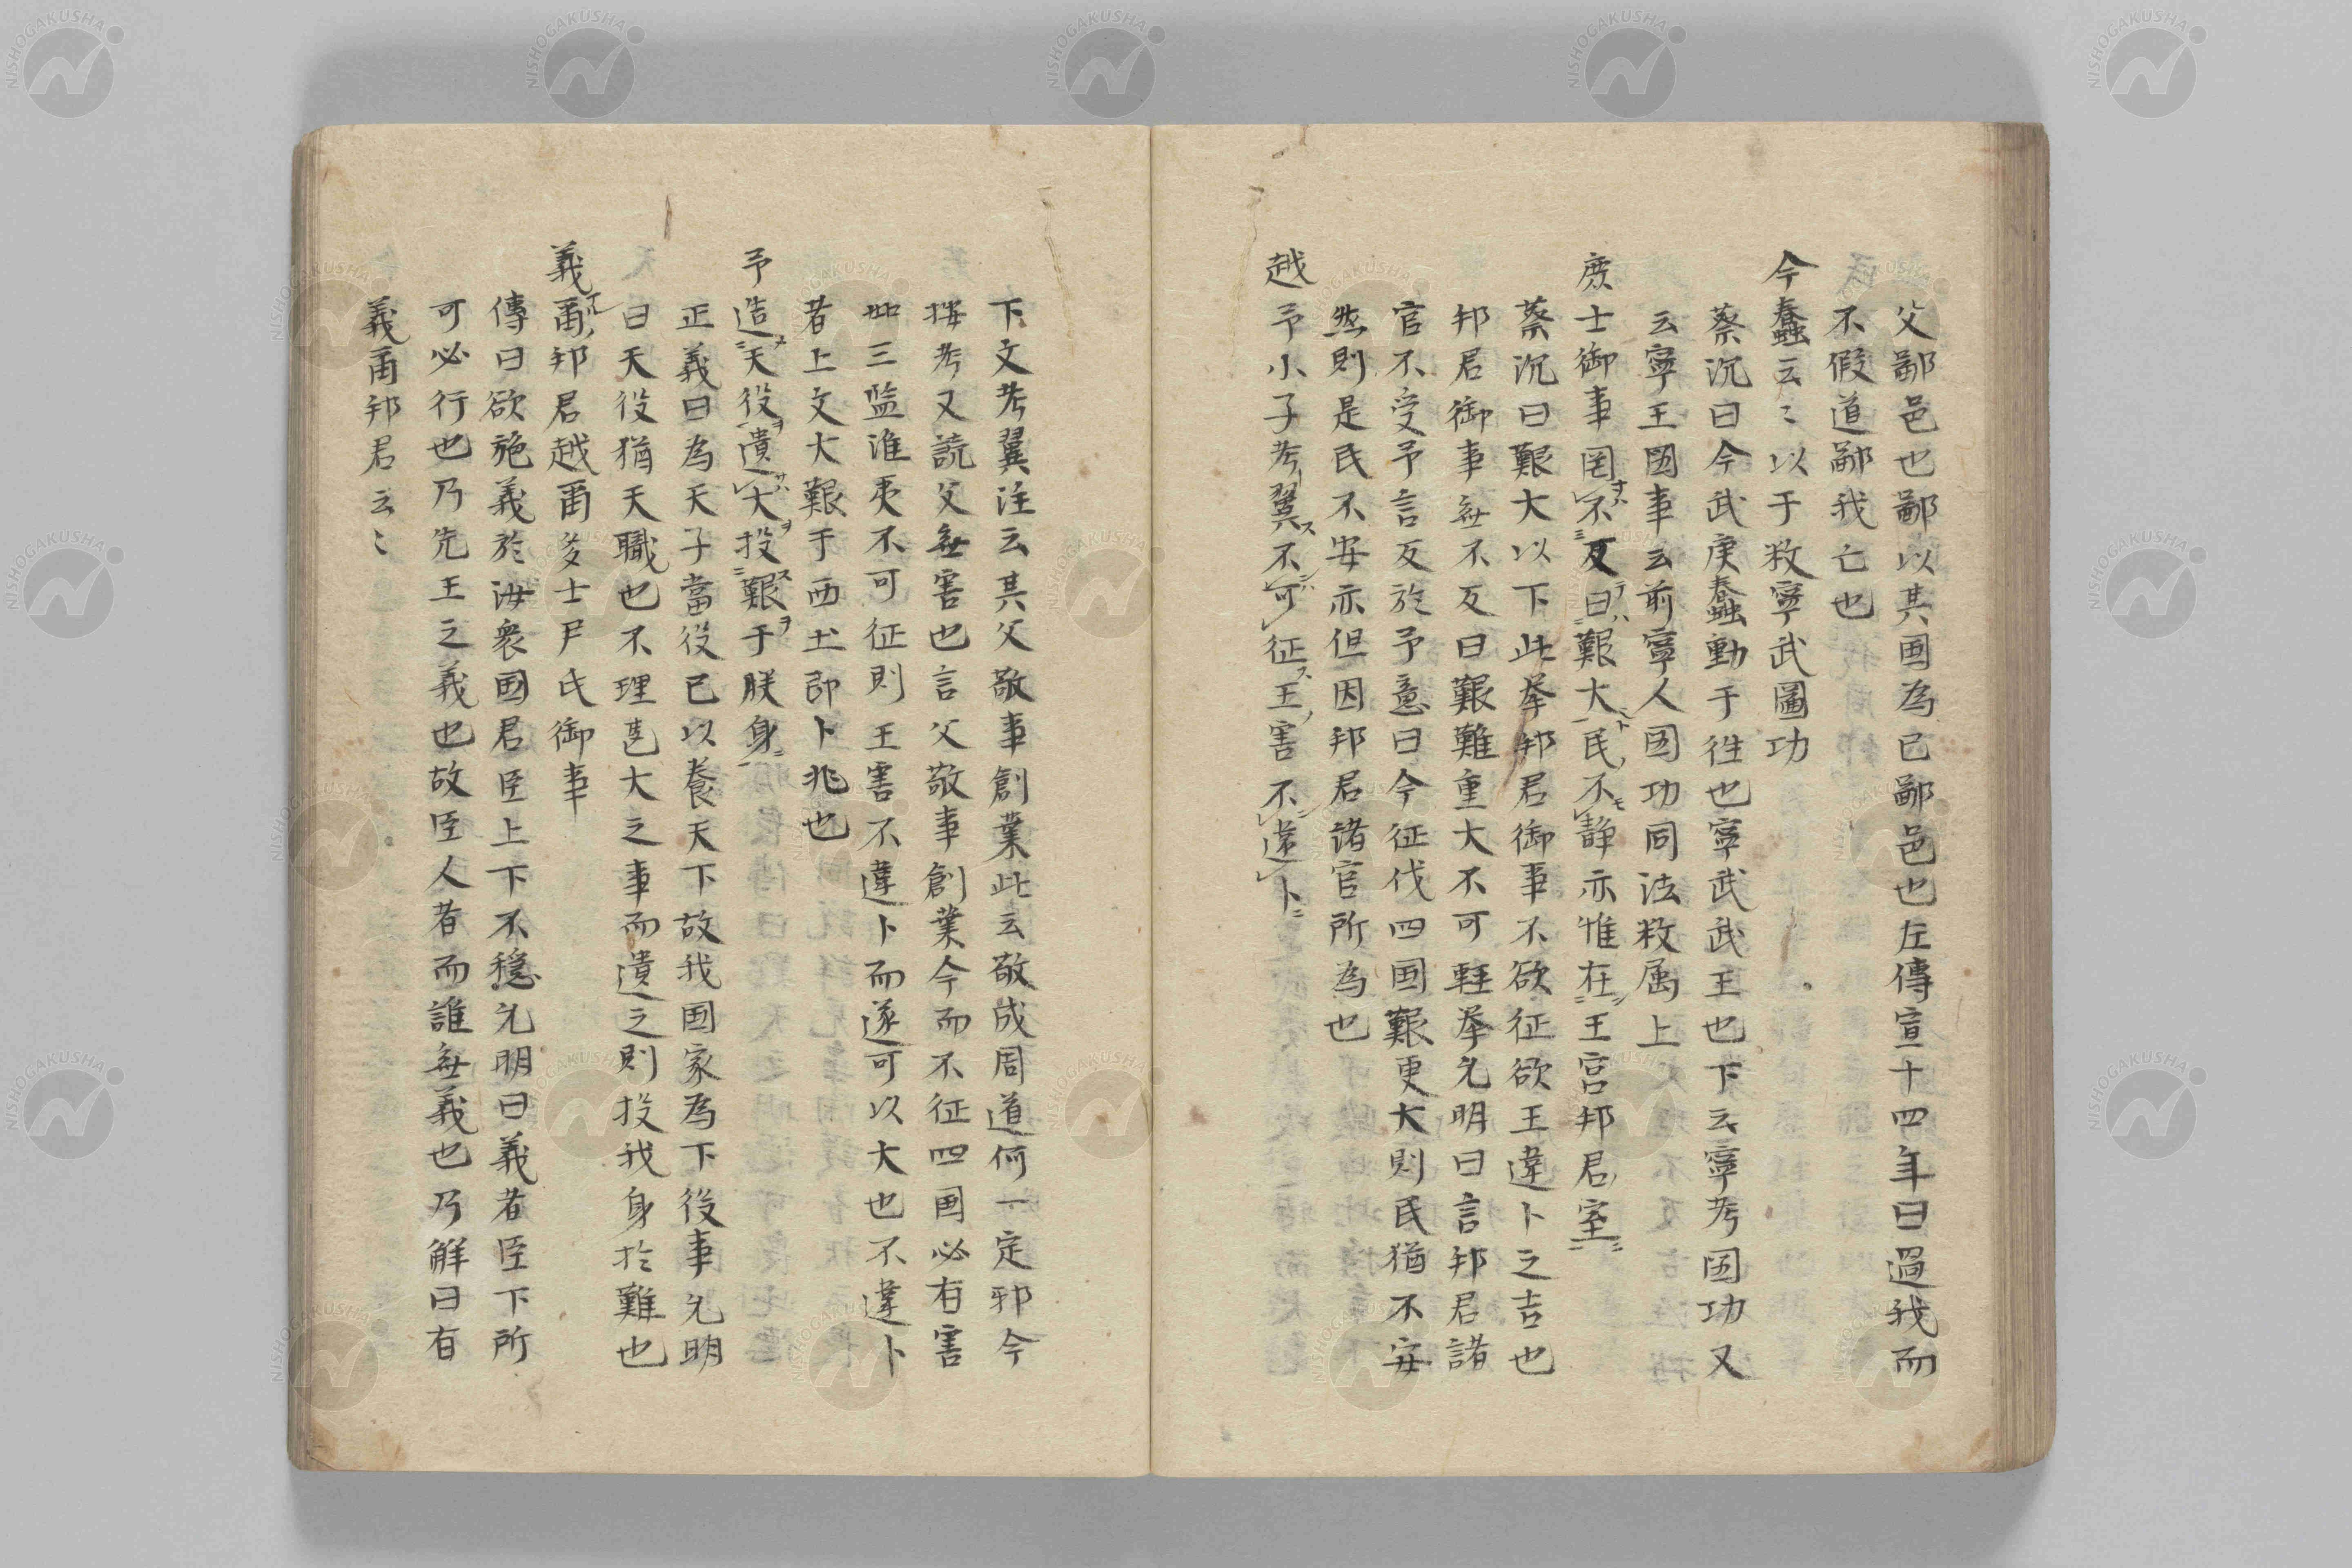 父鄙邑也鄙以其国為己鄙邑也左傳宣十四年曰過我而
不假道鄙我亡也
今蠢云〻以于敉寧武圖功
蔡沉曰今武庚蠢動于往也寧武武王也下云寧考図功又
云寧王図事云前寧人図功同法敉属上
庶士御事罔不反曰艱大民不静亦惟在王宮邦君室
蔡沉曰艱大以下此挙邦君御事不欲征欲王違卜之言也
邦君御事無不反曰艱難重大不可軽挙允明曰言邦君諸
官不受予言反於予意曰今征伐四国艱更大則民猶不安
然則是民不安亦但因邦君諸官所為也
越予小子考翼不可征王害不違卜
下文考翼注云其父敬事創業此云敬成周道何一定邪今
按考又読父無害也言父敬事創業今而不征四国必有害
卅三監淮夷不可征則王害不違卜而遂可以大也不違卜
者上文大艱于西土即卜兆也
予造天役遺大投艱于朕身
正義曰為天子當役己以養天下故我国家為下役事允明
曰天役猶天職也不理甚大之事而遺之則投我身於難也
義爾邦君越爾多士尹氏御事
傳曰欲施義於汝衆國君臣上下不穏允明曰義者臣下所
可必行也乃先王之義也故臣人者而誰無義也乃解曰有
義爾邦君云〻
NISHOGAKUSHA